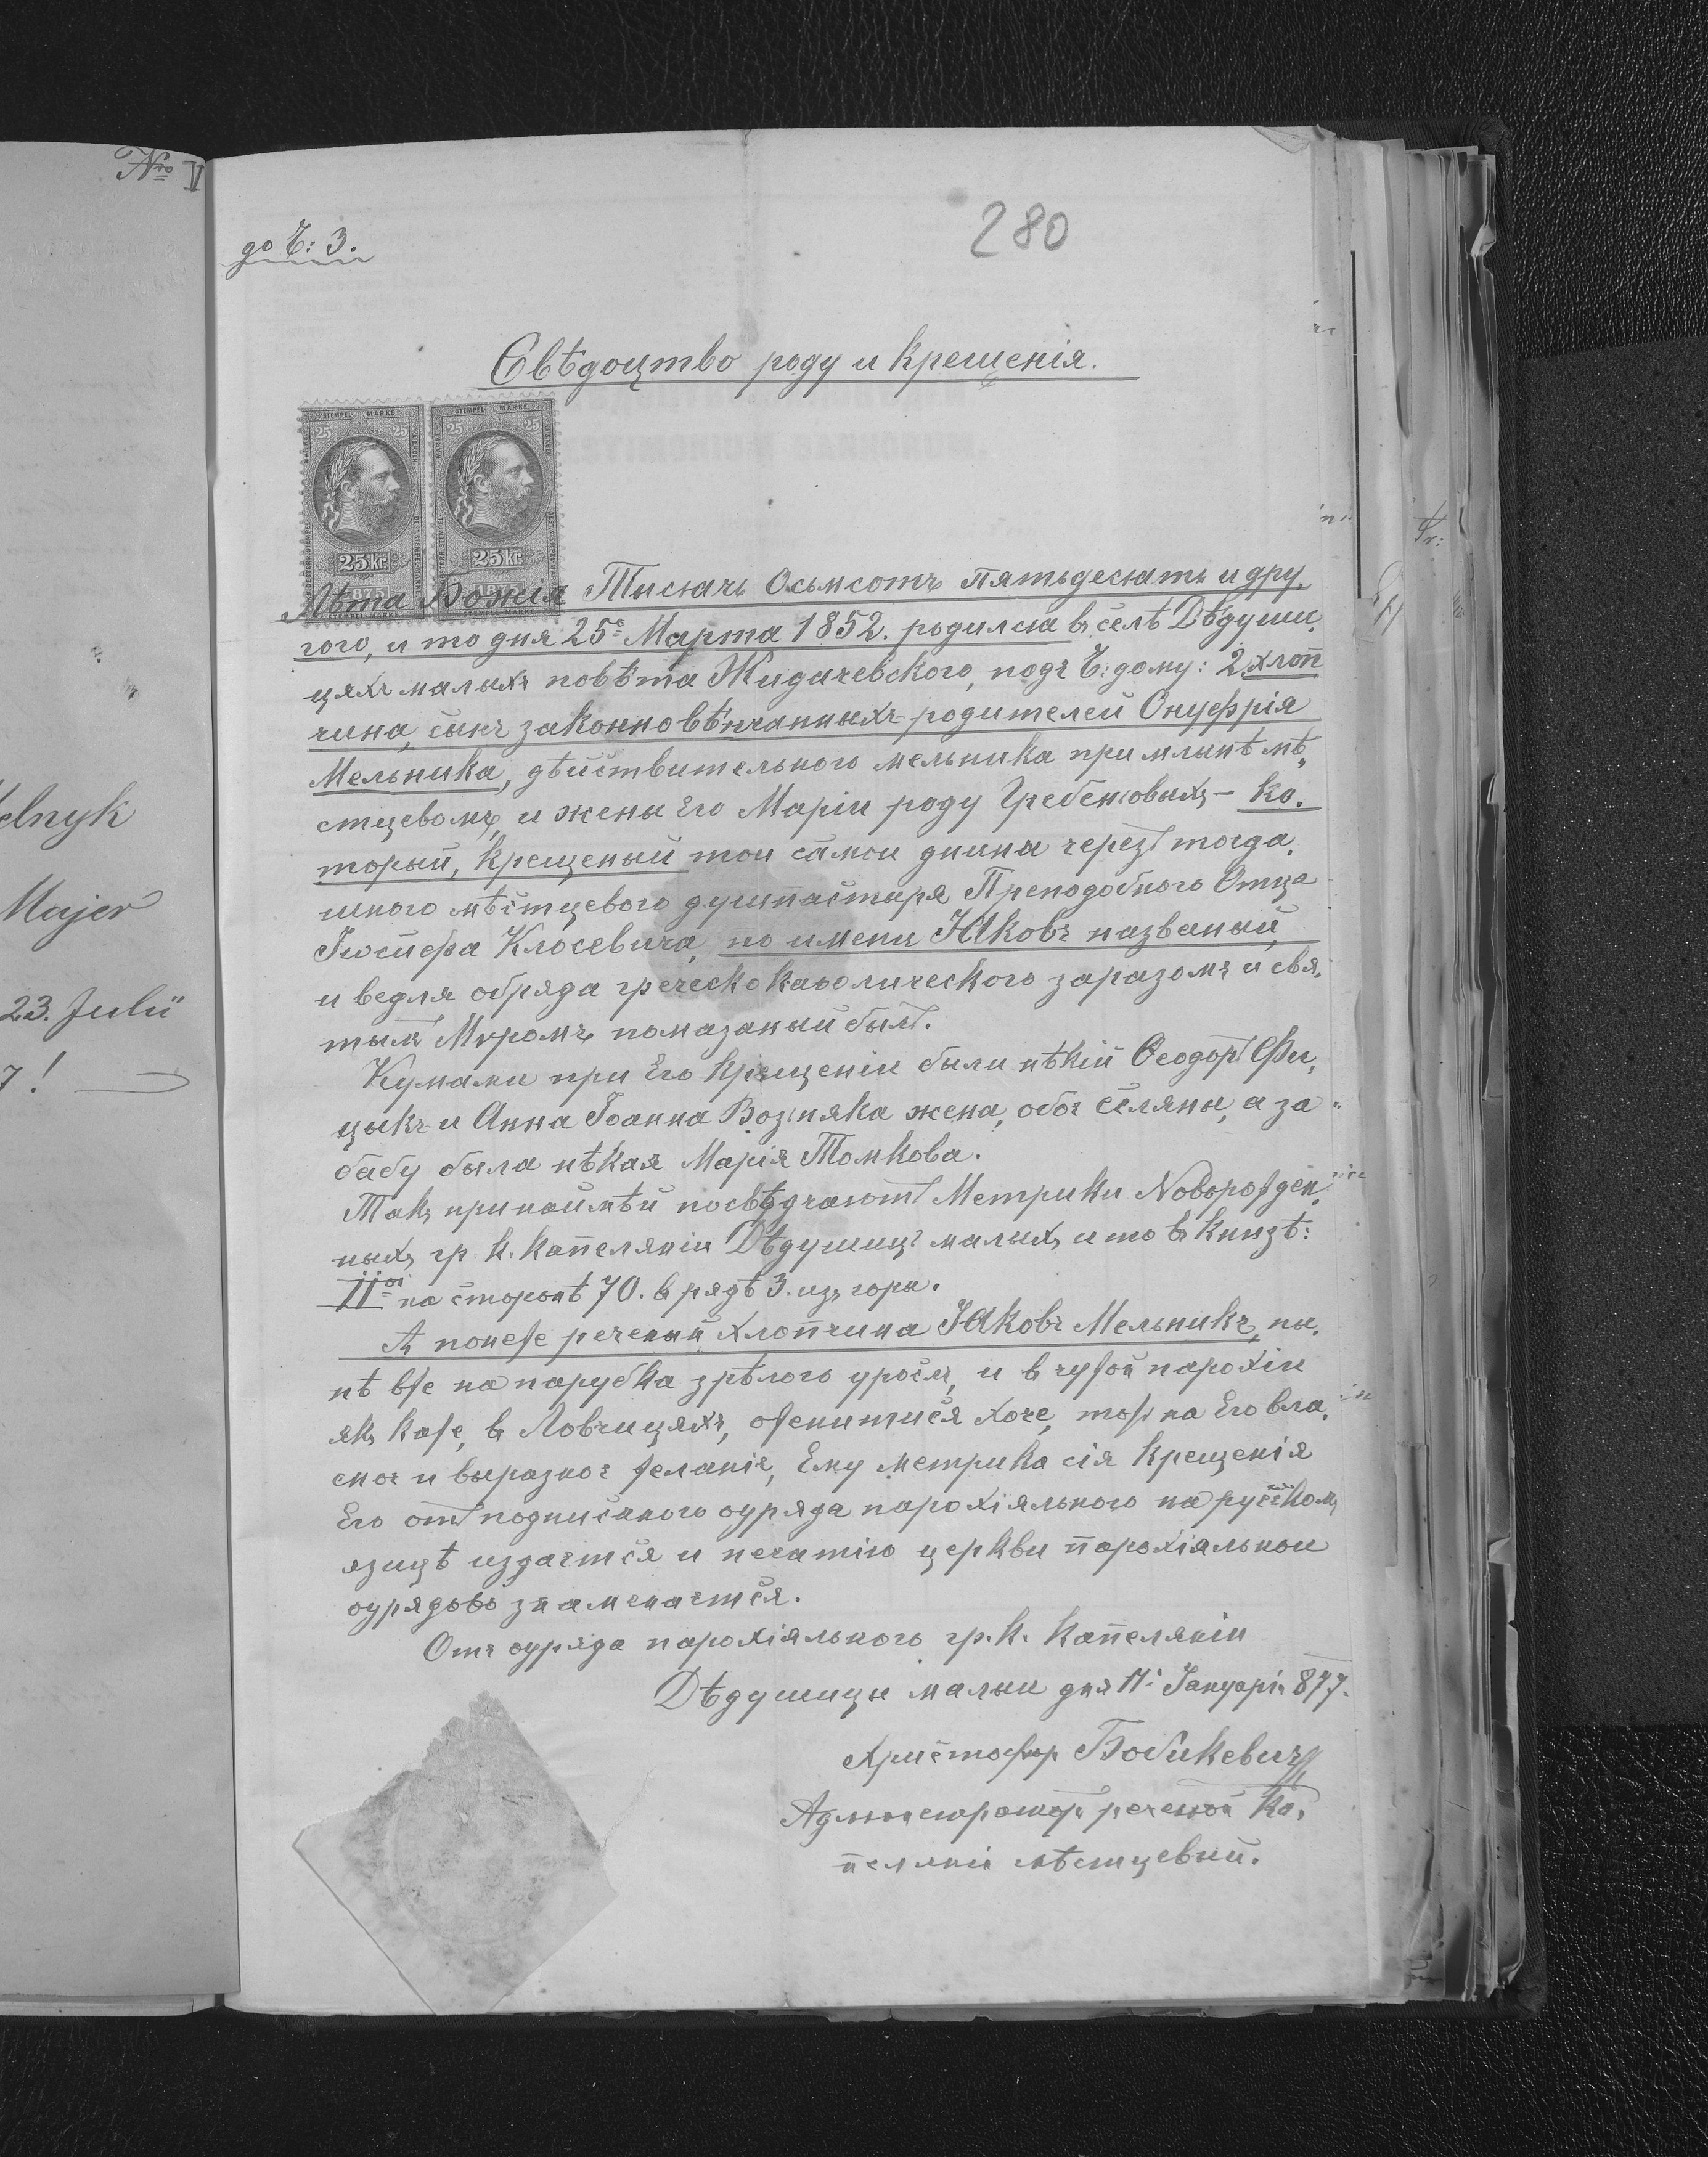 Nro V
280
до Ч: 3.
Свѣдоцтво роду и крещенія.
STEMPEL MARKE
25 25
25 kr.
1875
STEMPEL MARKE
25 25
25 kr.
1875
Лѣта Божія Тысячь Осьмсотъ пятьдесять и дру,
гого, и то дня 25е Марта 1852. родился въ селѣ Дѣдуши,
цяхъ малыхъ повѣта Жидачевского, подъ Ч: дому: 2, хлоп
чина, сынъ законно вѣнчанныхъ родителей Онуфрія
Мельника, дѣйствительного мельника при млынѣ мѣ,
стцевомъ, и жены Его Маріи роду Гребенювыхъ – ко,
торый, крещеный тои самои днины черезъ тогда,
шного мѣстцевого душпастыря Преподобного Отца
Іосифа Клосевича, по имени Яковъ названый,
и ведля обряда греческокаѳолического заразомъ и свя,
тымъ Мѵромъ помазаный былъ.
Кумами при Его крещеніи были нѣкій Ѳеодоръ Фи,
цыкъ и Анна Іоанна Возняка жена, обоє селяны, а за
бабу была нѣкая Марія Томкова.
Такъ принаймѣй посвѣдчаютъ Метрики Новорожден,
ныхъ гр. к. капеляніи Дѣдушиць малыхъ и то въ книзѣ:
IIои на сторонѣ 70. въ рядѣ 3. изъ горы.
А понеже реченый хлопчина Яковъ Мельникъ, ны,
нѣ вже на парубка зрѣлого уросъ, и въ чужой парохіи
якъ каже, въ Ловчицяхъ, оженитися хоче, тожъ на Его вла,
сноє и выразноє желаніє, Ему метрика сія крещенія
Его отъ подписаного оуряда парохіяльного на русскомъ
языцѣ издаєтся и печатію церкви парохіяльнои
оурядово знаменаєтся.
Отъ оуряда парохіяльного гр. к. капеляніи
Дѣдушицы малыи дня 11: Януарія 877.
Христофор Бобикевичъ
Администраторъ реченой ка,
пеляніи мѣстцевый.
elnyk
Majer
23. Julii
7!